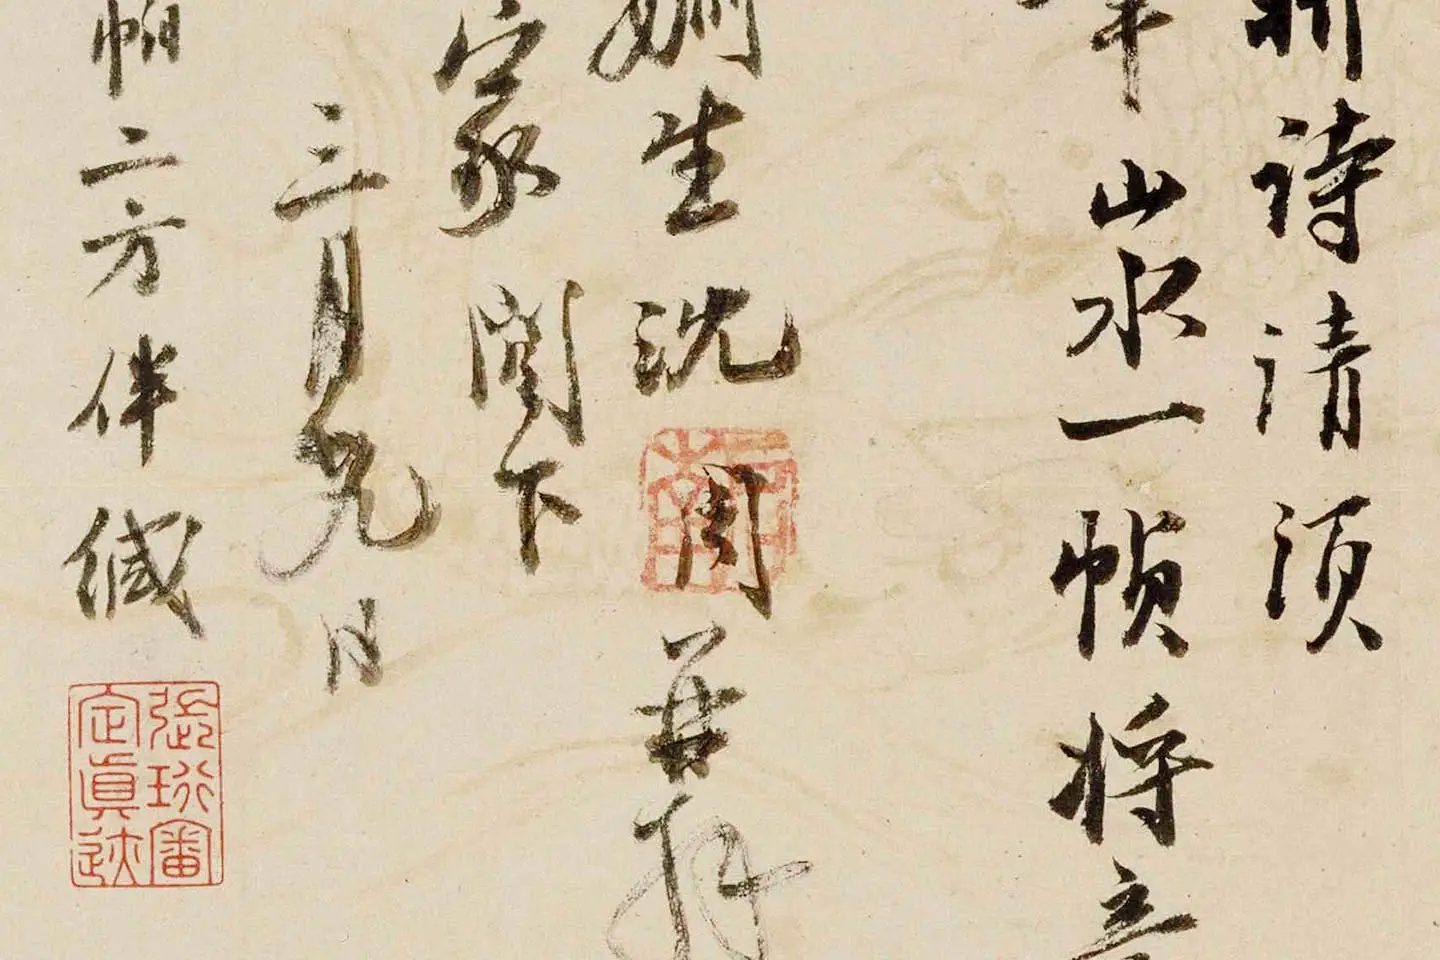 詩請須
山水一幀將
生沈周再拜
家閣下
三月九日
帕二方伴緘
張珩審
定真迹